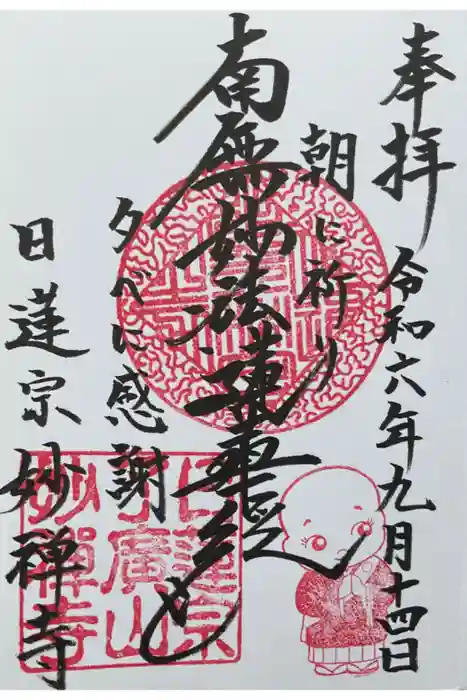 奉拝
令和六年九月十四日
朝に祈り
南無妙法蓮華経と
夕べに感謝
日蓮宗 妙禅寺
日蓮宗
廣山
妙禪寺